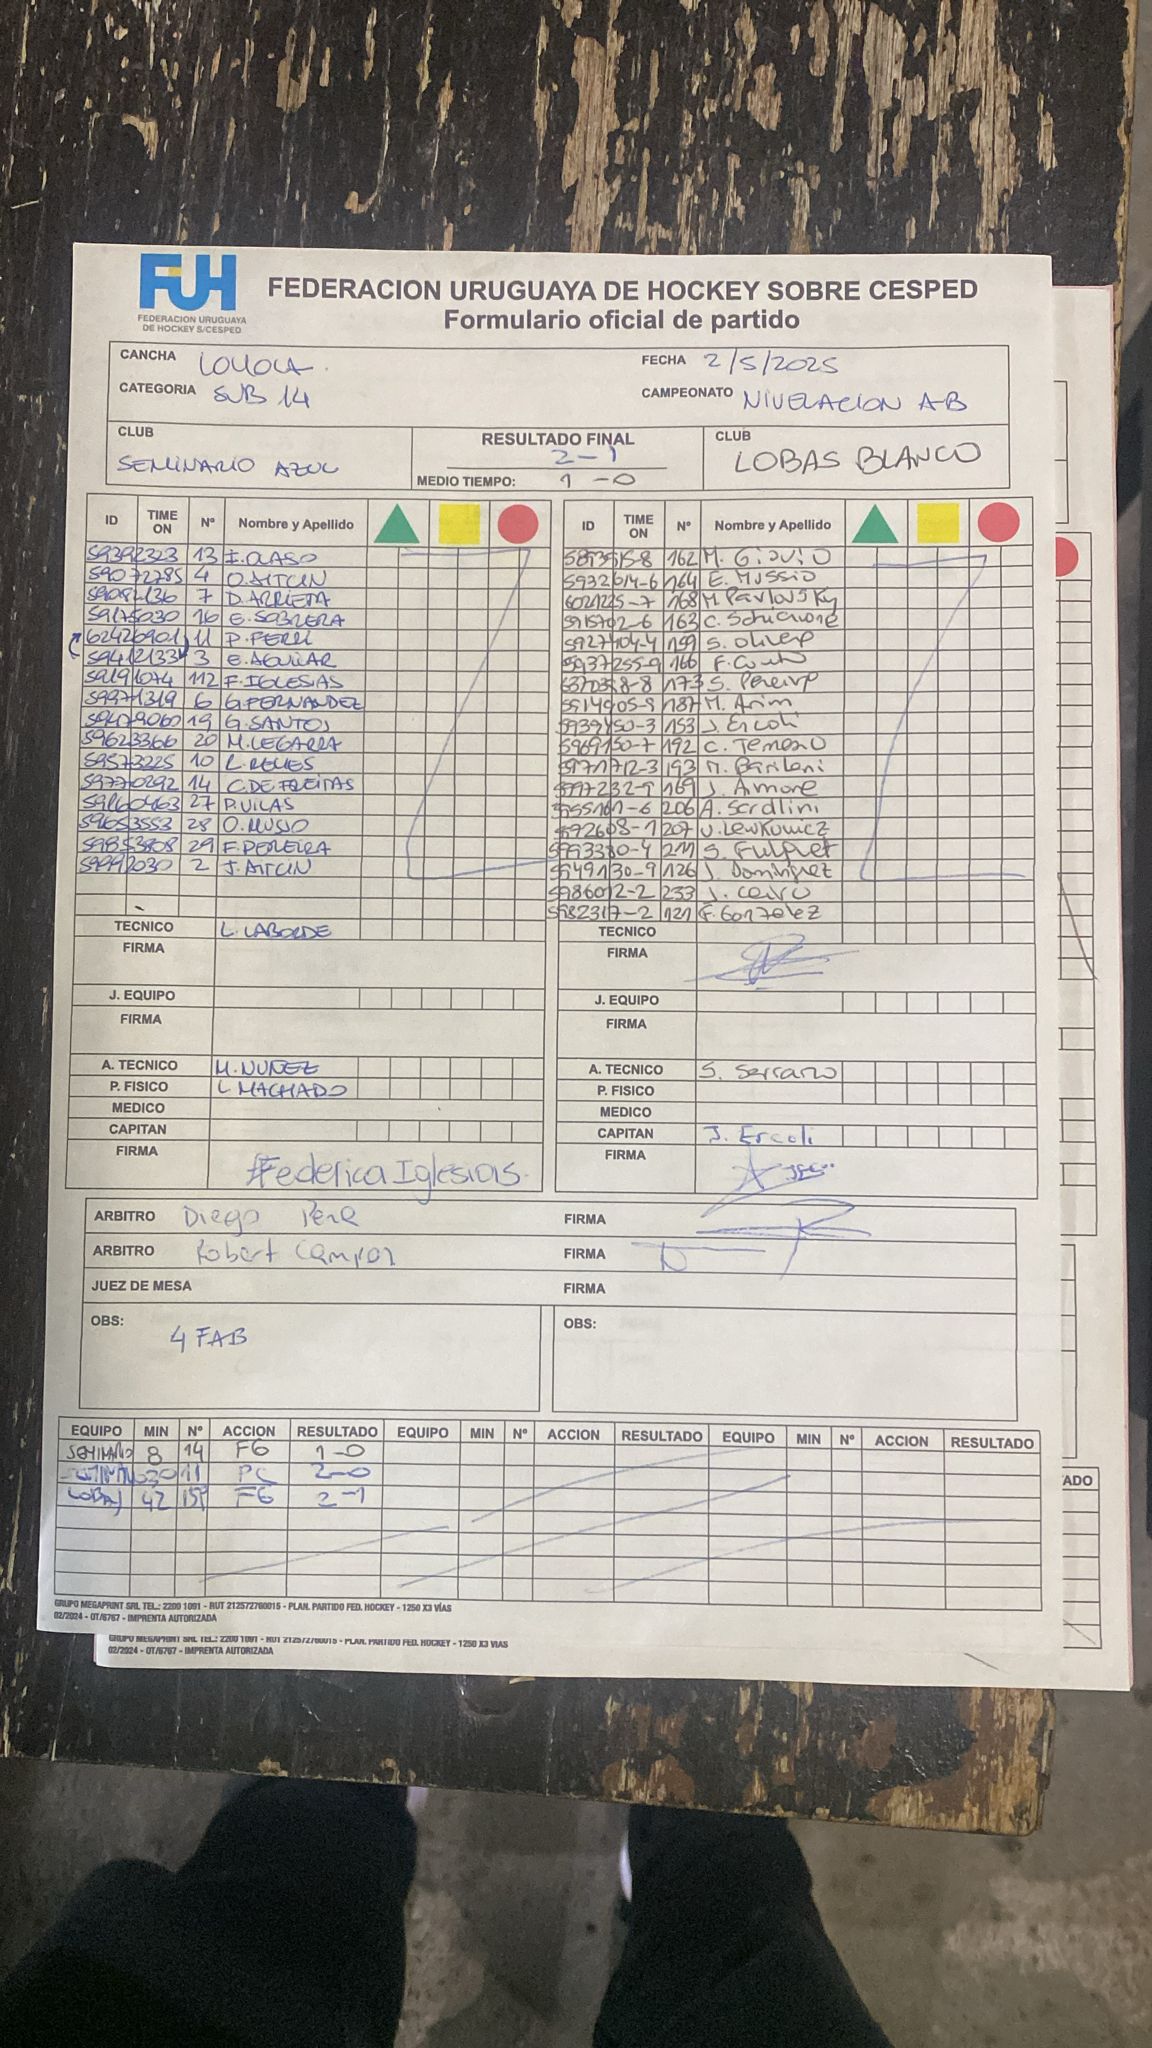 FUH
FEDERACION URUGUAYA
DE HOCKEY S/CESPED
FEDERACION URUGUAYA DE HOCKEY SOBRE CESPED
Formulario oficial de partido
CANCHA LOYOLA FECHA 2/5/2025
CATEGORIA SUB 14 CAMPEONATO NIVELACION A-B
CLUB SEMINARIO AZUL
RESULTADO FINAL 2-1
MEDIO TIEMPO: 1-0
CLUB LOBAS BLANCO
ID TIME ON Nº Nombre y Apellido
59392323 13 I. OLASO
59072785 4 O. AITCIN
59082136 7 D. ARRIETA
59175030 16 E. SOBRERA
62426901 11 P. FERRI
59412133 3 E. AGUILAR
59191674 112 F. IGLESIAS
59971319 6 G. FERNANDEZ
59479060 19 G. SANTOS
59623366 20 M. LEGARRA
59573225 10 L. REYES
59770292 14 C. DE FREITAS
59160463 27 P. VILAS
59653553 28 O. MUSIO
59853808 29 F. PEREIRA
59992030 2 J. AITCIN
TECNICO L. LABORDE
FIRMA
J. EQUIPO
FIRMA
A. TECNICO M. NUÑEZ
P. FISICO L. MACHADO
MEDICO
CAPITAN
FIRMA Federica Iglesias.
ID TIME ON Nº Nombre y Apellido
162 M.
5932614-6 164 E. Mussio
6021225-7 168 M. Pavlovsky
5915702-6 163 C.
5927404-4 159 S. Oliver
5937255-9 166 F. Couto
173 S. Pereira
5914905-9 187 M. Arim
5939450-3 153 J. Ercoli
5969150-7 192 C.
5971712-3 193 M. Parilani
5977232-9 169 J. Aimone
206 A. Scrollini
5972608-1 207 V. Lewkowicz
5993380-4 211 S.
5949130-9 126 J. Dominguez
5986012-2 233 J.
5982317-2 121 F. Gonzalez
TECNICO
FIRMA
J. EQUIPO
FIRMA
A. TECNICO S. Serrano
P. FISICO
MEDICO
CAPITAN J. Ercoli
FIRMA
ARBITRO Diego FIRMA
ARBITRO Robert FIRMA
JUEZ DE MESA FIRMA
OBS: 4 FAB
OBS:
EQUIPO MIN Nº ACCION RESULTADO EQUIPO MIN Nº ACCION RESULTADO EQUIPO MIN Nº ACCION RESULTADO
SEMINARIO 8 14 FG 1-0
30 11 PC 2-0
LOBAS 42 159 FG 2-1
GRUPO MEGAPRINT SRL TEL.: 2200 1091 - RUT 212572760015 - PLAN. PARTIDO FED. HOCKEY - 1250 X3 VÍAS
02/2024 - OT/6767 - IMPRENTA AUTORIZADA
ADO
GRUPO MEGAPRINT SRL TEL.: 2200 1091 - RUT 212572760015 - PLAN. PARTIDO FED. HOCKEY - 1250 X3 VÍAS
02/2024 - OT/6767 - IMPRENTA AUTORIZADA